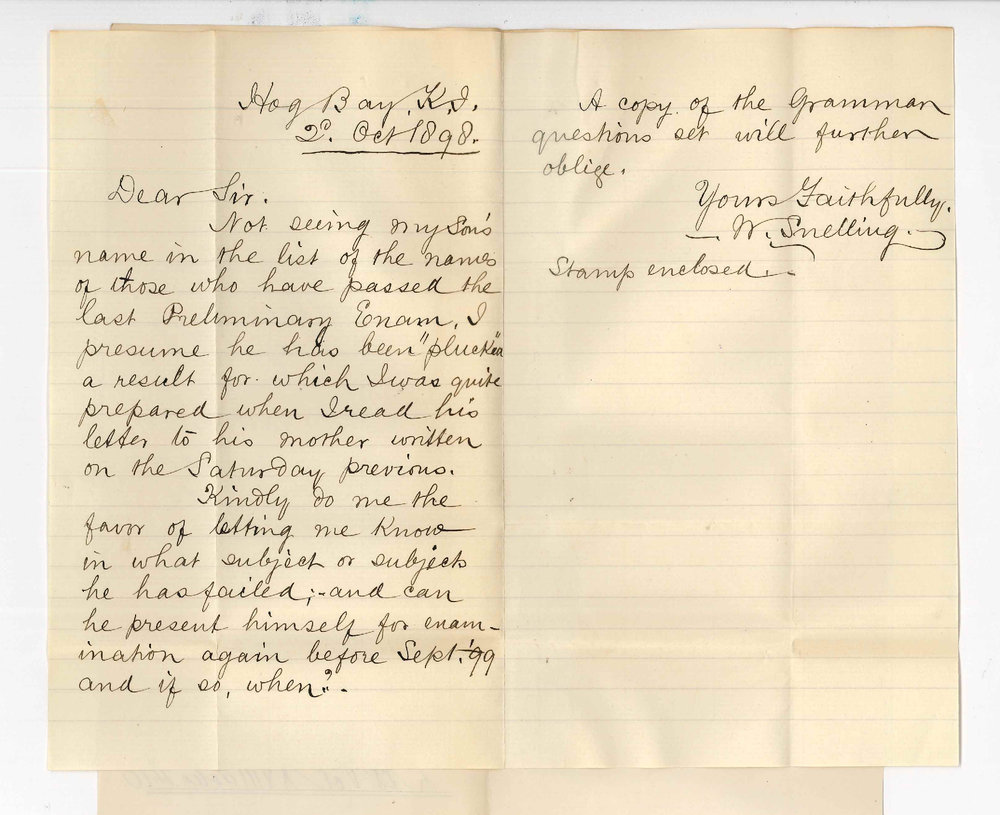 Hog Bay, K.I.
2d. Oct. 1898.
Dear Sir.
Not seeing my Son's
name in the list of the names
of those who have passed the
last Preliminary Exam, I
presume he has been "pluck'd"
a result for which I was quite
prepared when I read his
letter to his mother written
on the Saturday previous.
Kindly do me the
favor of letting me know
in what subject or subjects
he has failed;-and can
he present himself for exam-
ination again before Sept. '99
and if so, when?.
A copy of the Grammar
questions set will further
oblige.
Yours Faithfully,
W. Snelling.
Stamp enclosed.